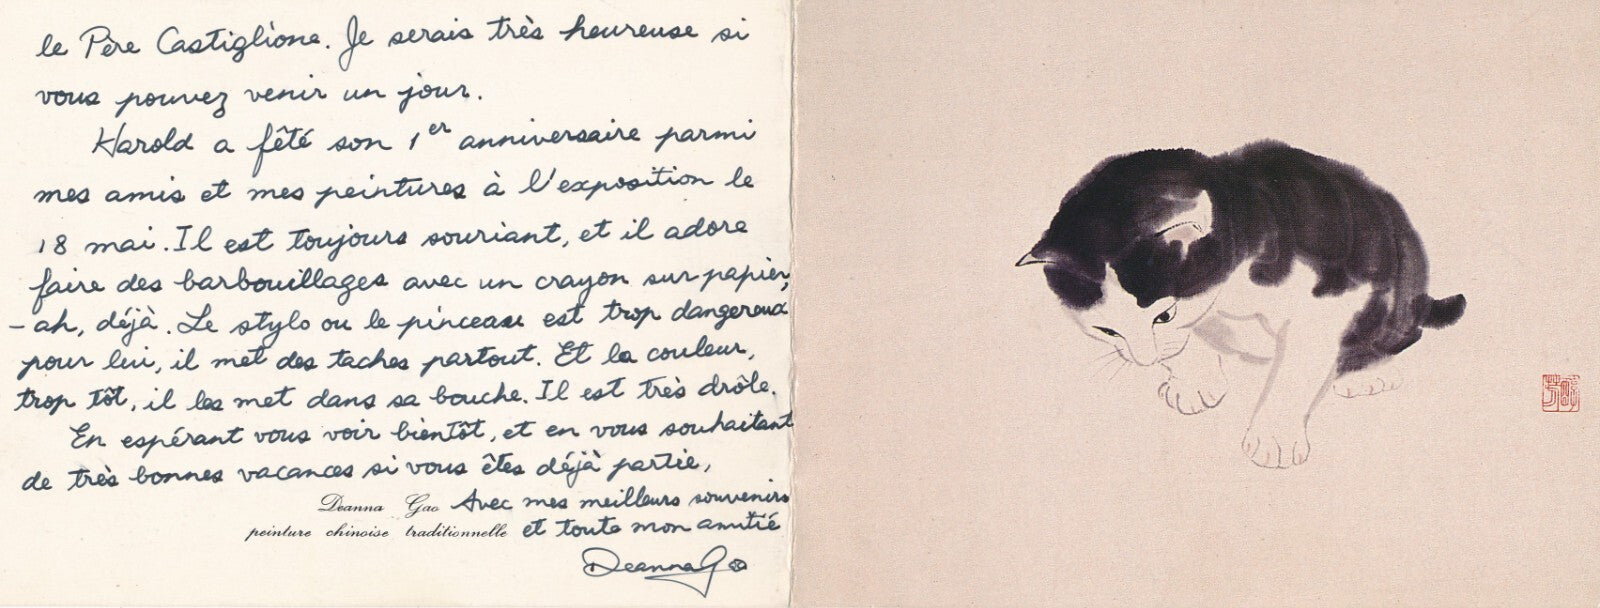 le Père Castiglione. Je serais très heureuse si
vous pouvez venir un jour.
Harold a fêté son 1er anniversaire parmi
mes amis et mes peintures à l'exposition le
18 mai. Il est toujours souriant, et il adore
faire des barbouillages avec un crayon sur papier,
- ah, déjà. Le stylo ou le pinceau est trop dangereux
pour lui, il met des taches partout. Et la couleur,
trop tôt, il les met dans sa bouche. Il est très drôle.
En espérant vous voir bientôt, et en vous souhaitant
de très bonnes vacances si vous êtes déjà partie,
Avec mes meilleurs souvenirs
et toute mon amitié
Deanna Gao
peinture chinoise traditionnelle
Deanna Gao